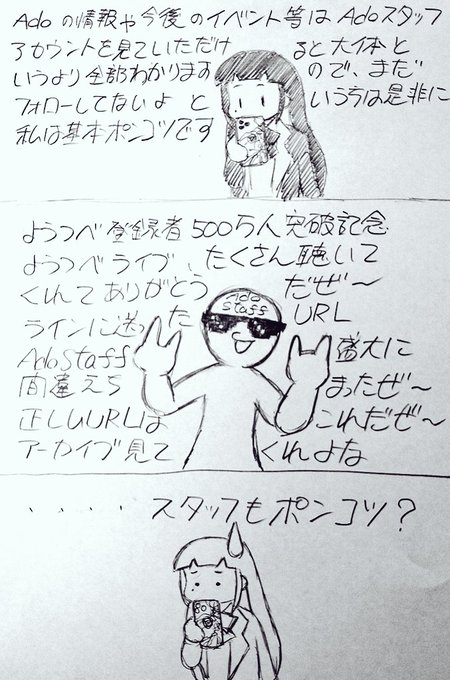 Adoの情報や今後のイベント等はAdoスタッフ
アカウントを見ていただけ ると大体と
いうより全部わかります ので、まだ
フォローしてないよ と いうちは是非に
私は基本ポンコツです
ようつべ登録者500万人突破記念
ようつべライブ、たくさん聴いて
くれてありがとう だぜ〜
ラインに送った URL
AdoStaff 盛大に
間違えち まったぜ〜
正しいURLは これだぜ〜
アーカイブ見て くれよな
Ado
staff
・・・・ スタッフもポンコツ？